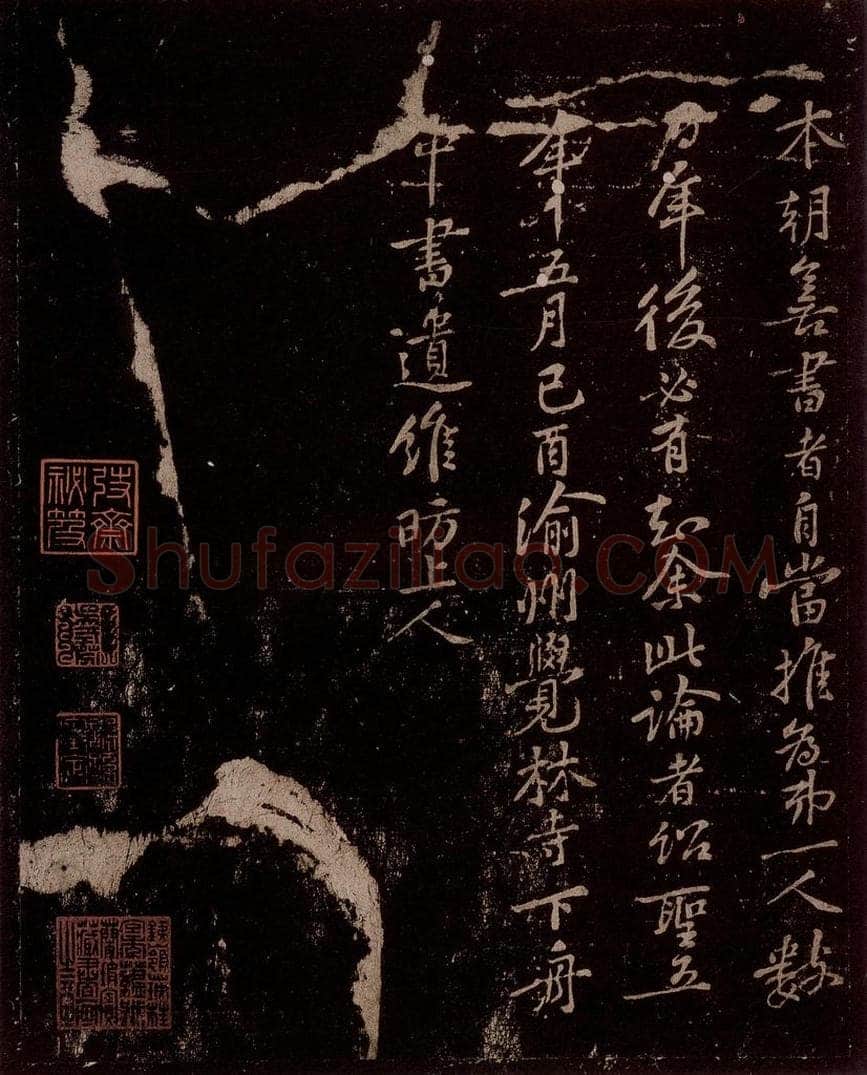 本朝善書者自當推為第一人數
百年後必有知余此論者紹聖五
年五月己酉渝州覺林寺下舟
中書遺維昉上人
Shufaziliao.COM